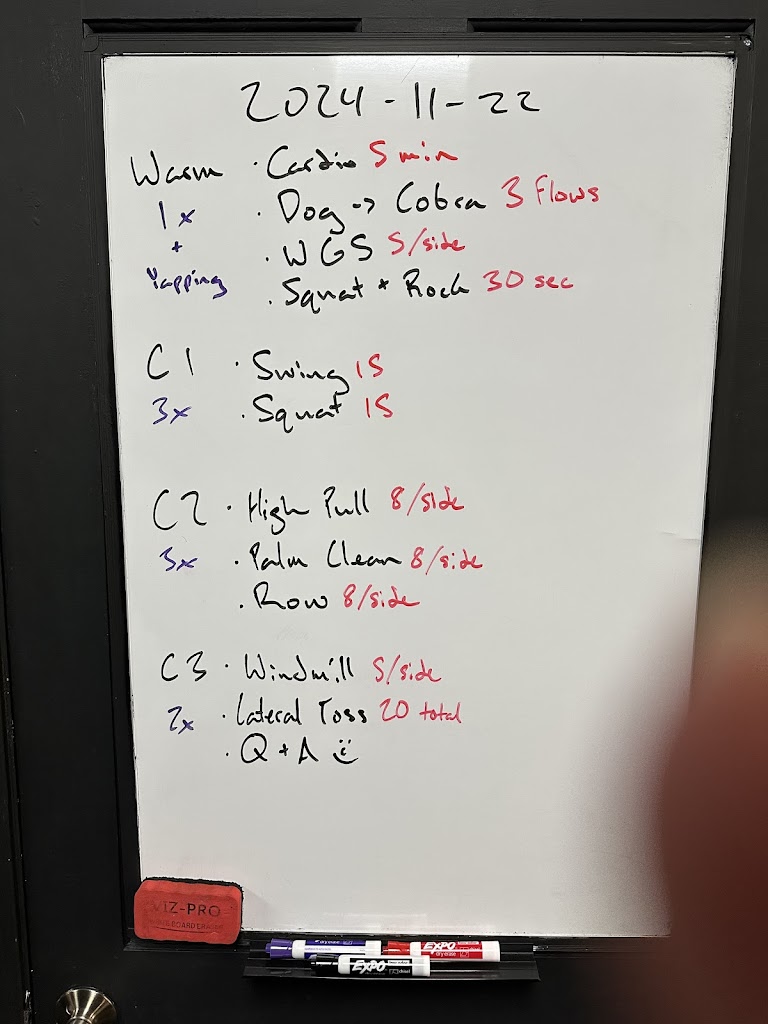 2024-11-22
Warm · Cardio 5 min
1x · Dog -> Cobra 3 Flows
+ · WGS 5/side
Yapping · Squat + Rock 30 sec
C1 · Swing 15
3x · Squat 15
C2 · High Pull 8/side
3x · Palm Clean 8/side
· Row 8/side
C3 · Windmill 5/side
2x · Lateral Toss 20 total
· Q + A :)
VIZ-PRO
EXPO
dry erase
EXPO chisel